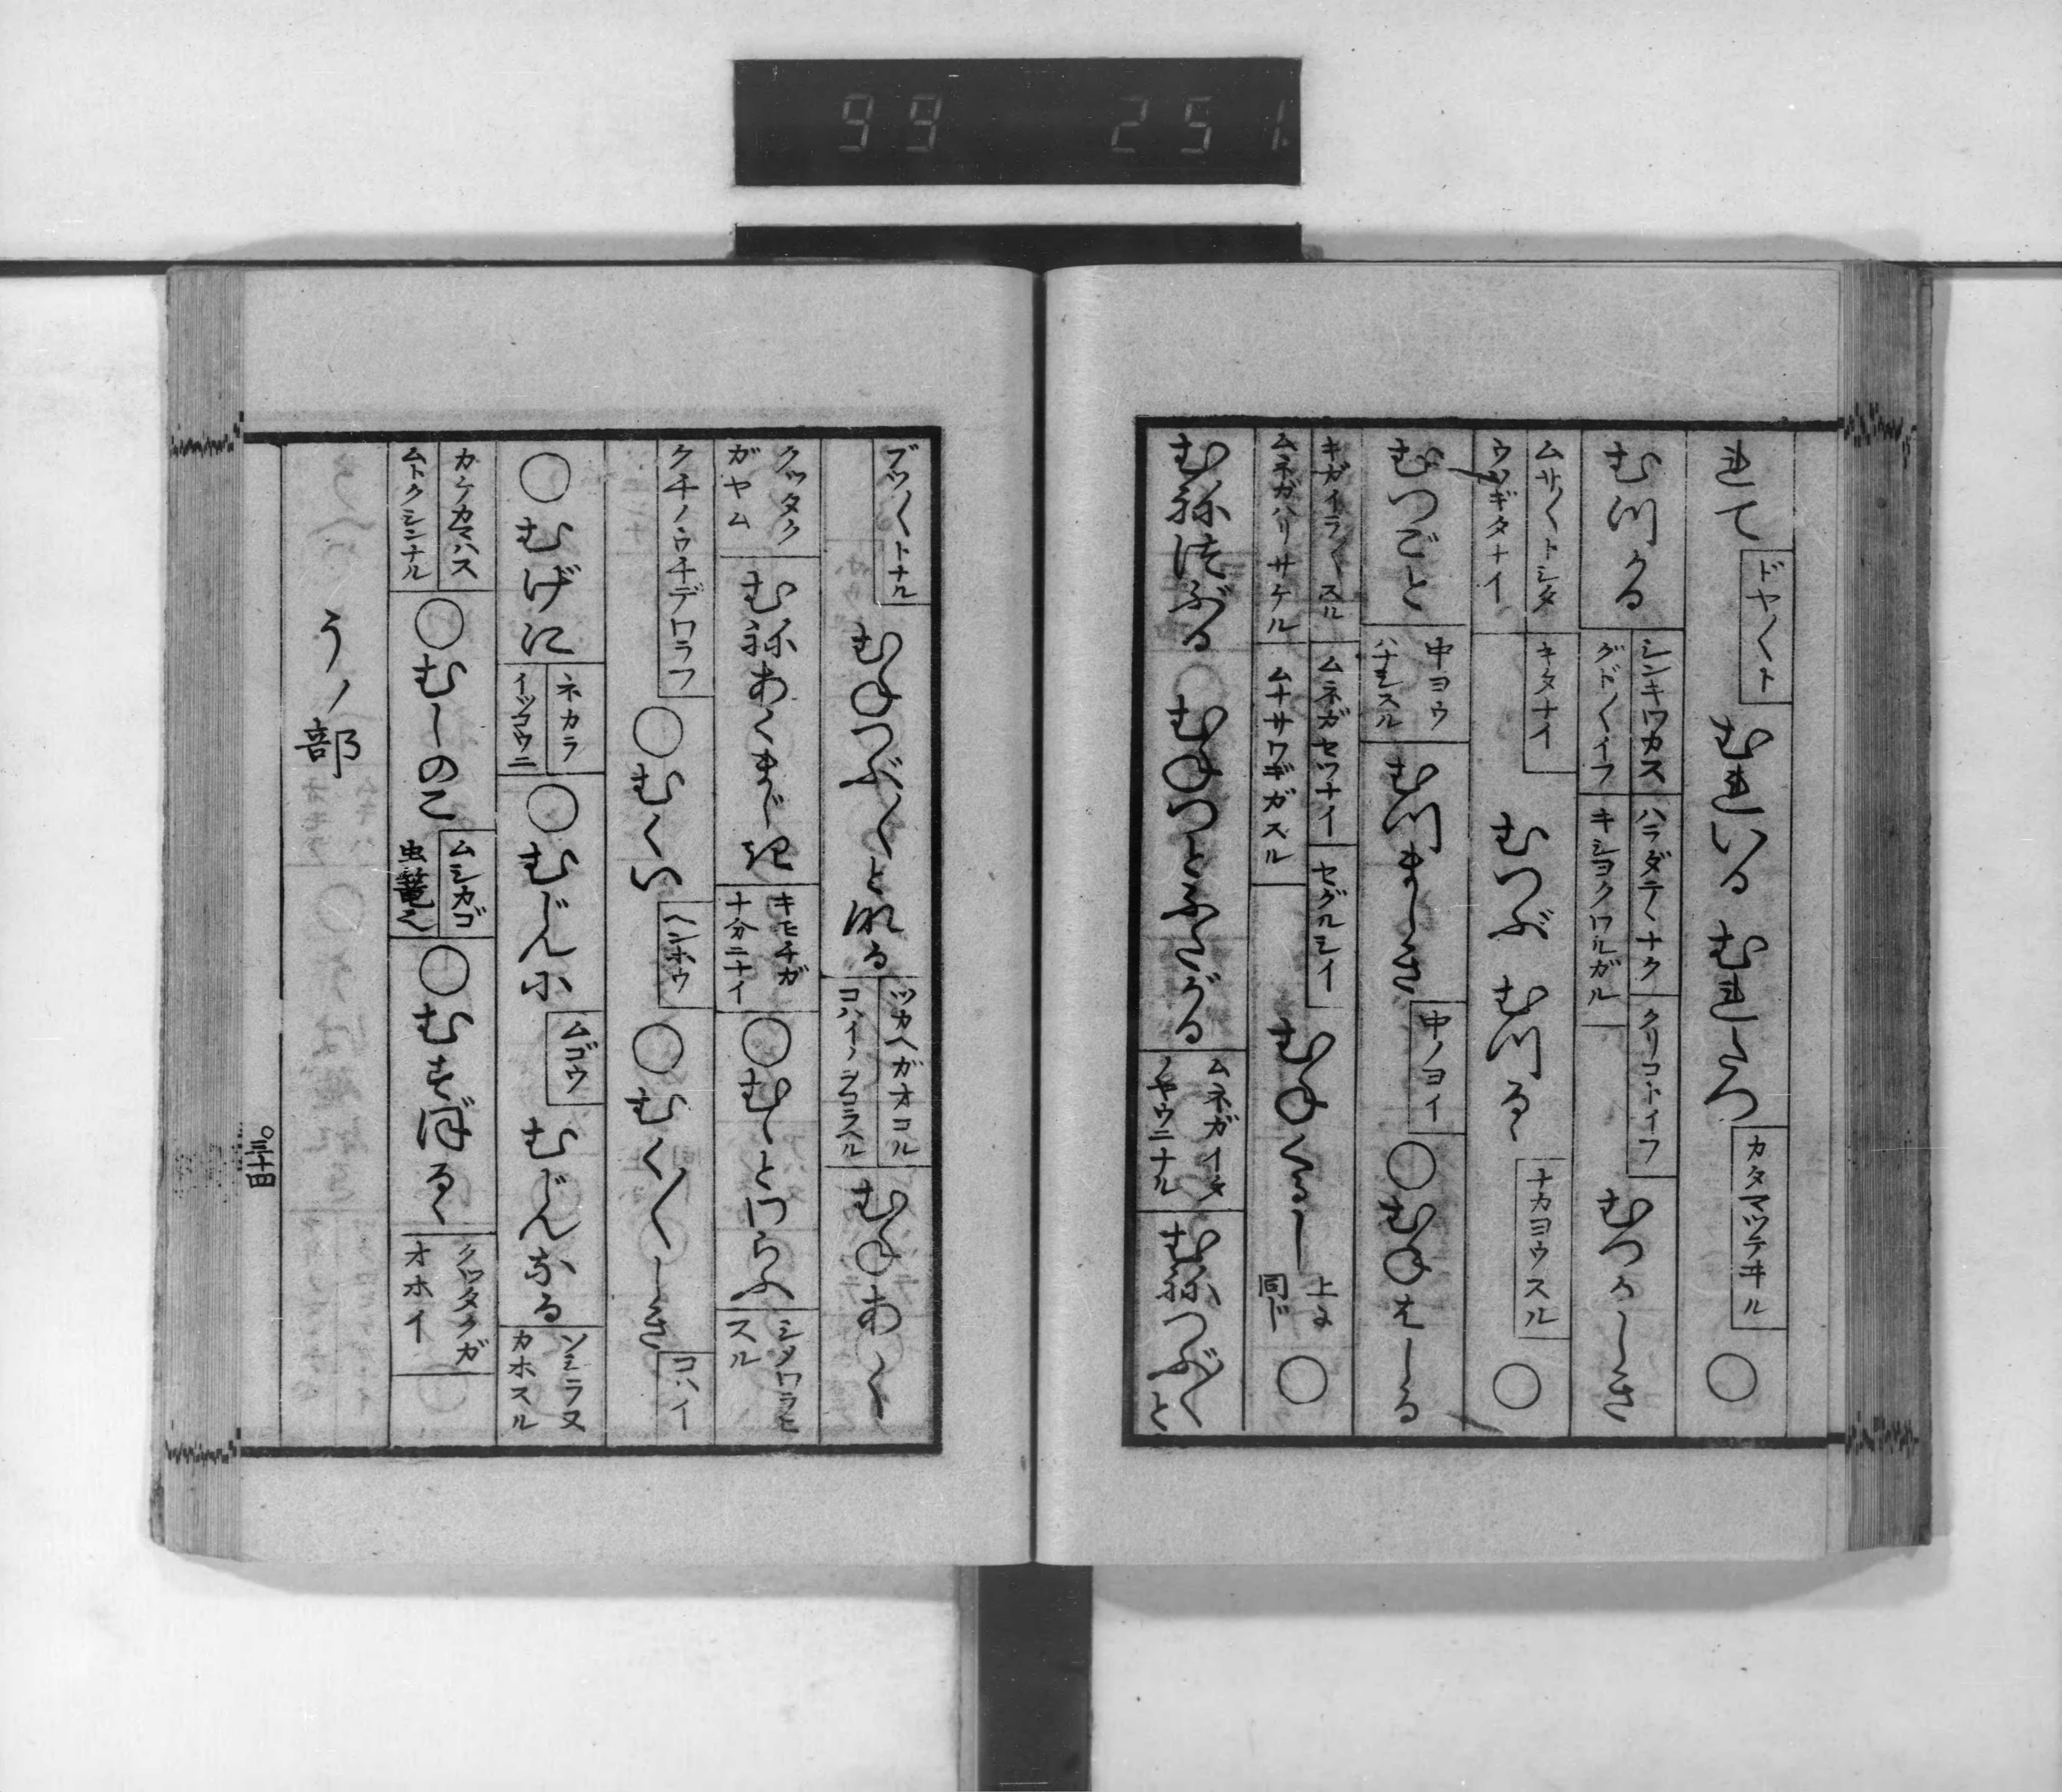 99 251
れて ドヤ〱ト むれいる むれたつ カタマツテヰル ○
むつかる シンキワカス ハラダテヽナク クリコトイフ グド〱イフ キシヨクワルガル むつかしき
ムサ〱トシタ ウソギタナイ キタナイ むつぶ むつるゝ ナカヨウスル ○
むつごと 中ヨウ ハナシスル むつましき 中ノヨイ ○むねはしる
キガイラ〱スル ムネガセツナイ セグルシイ ムネガハリサケル ムナサワギガスル むねくるし 上に同ド ○
むねつぶる ○むねつとふたがる ムネガイタ ノヤウニナル むねつぶ〱と
ブツ〱トナル むねつぶ〱となる ツカヘガオコル コハイノヲコラヘル むねあく
クツタクガヤム むねあくまじき キモチガ十分ニナイ ○むしとわらふ シノワラヒスル
クチノウチデワラフ ○むくい ヘンホウ ○むく〱しき コハイ
○むげに ネカラ イツコウニ ○むじんに ムゴウ むじんなる ソシラヌカホスル
カケカマハス ムトクシンナル ○むしのこ ムシカゴ 虫篭也 ○むすぼるゝ クツタクガオホイ
うノ部
○三十四